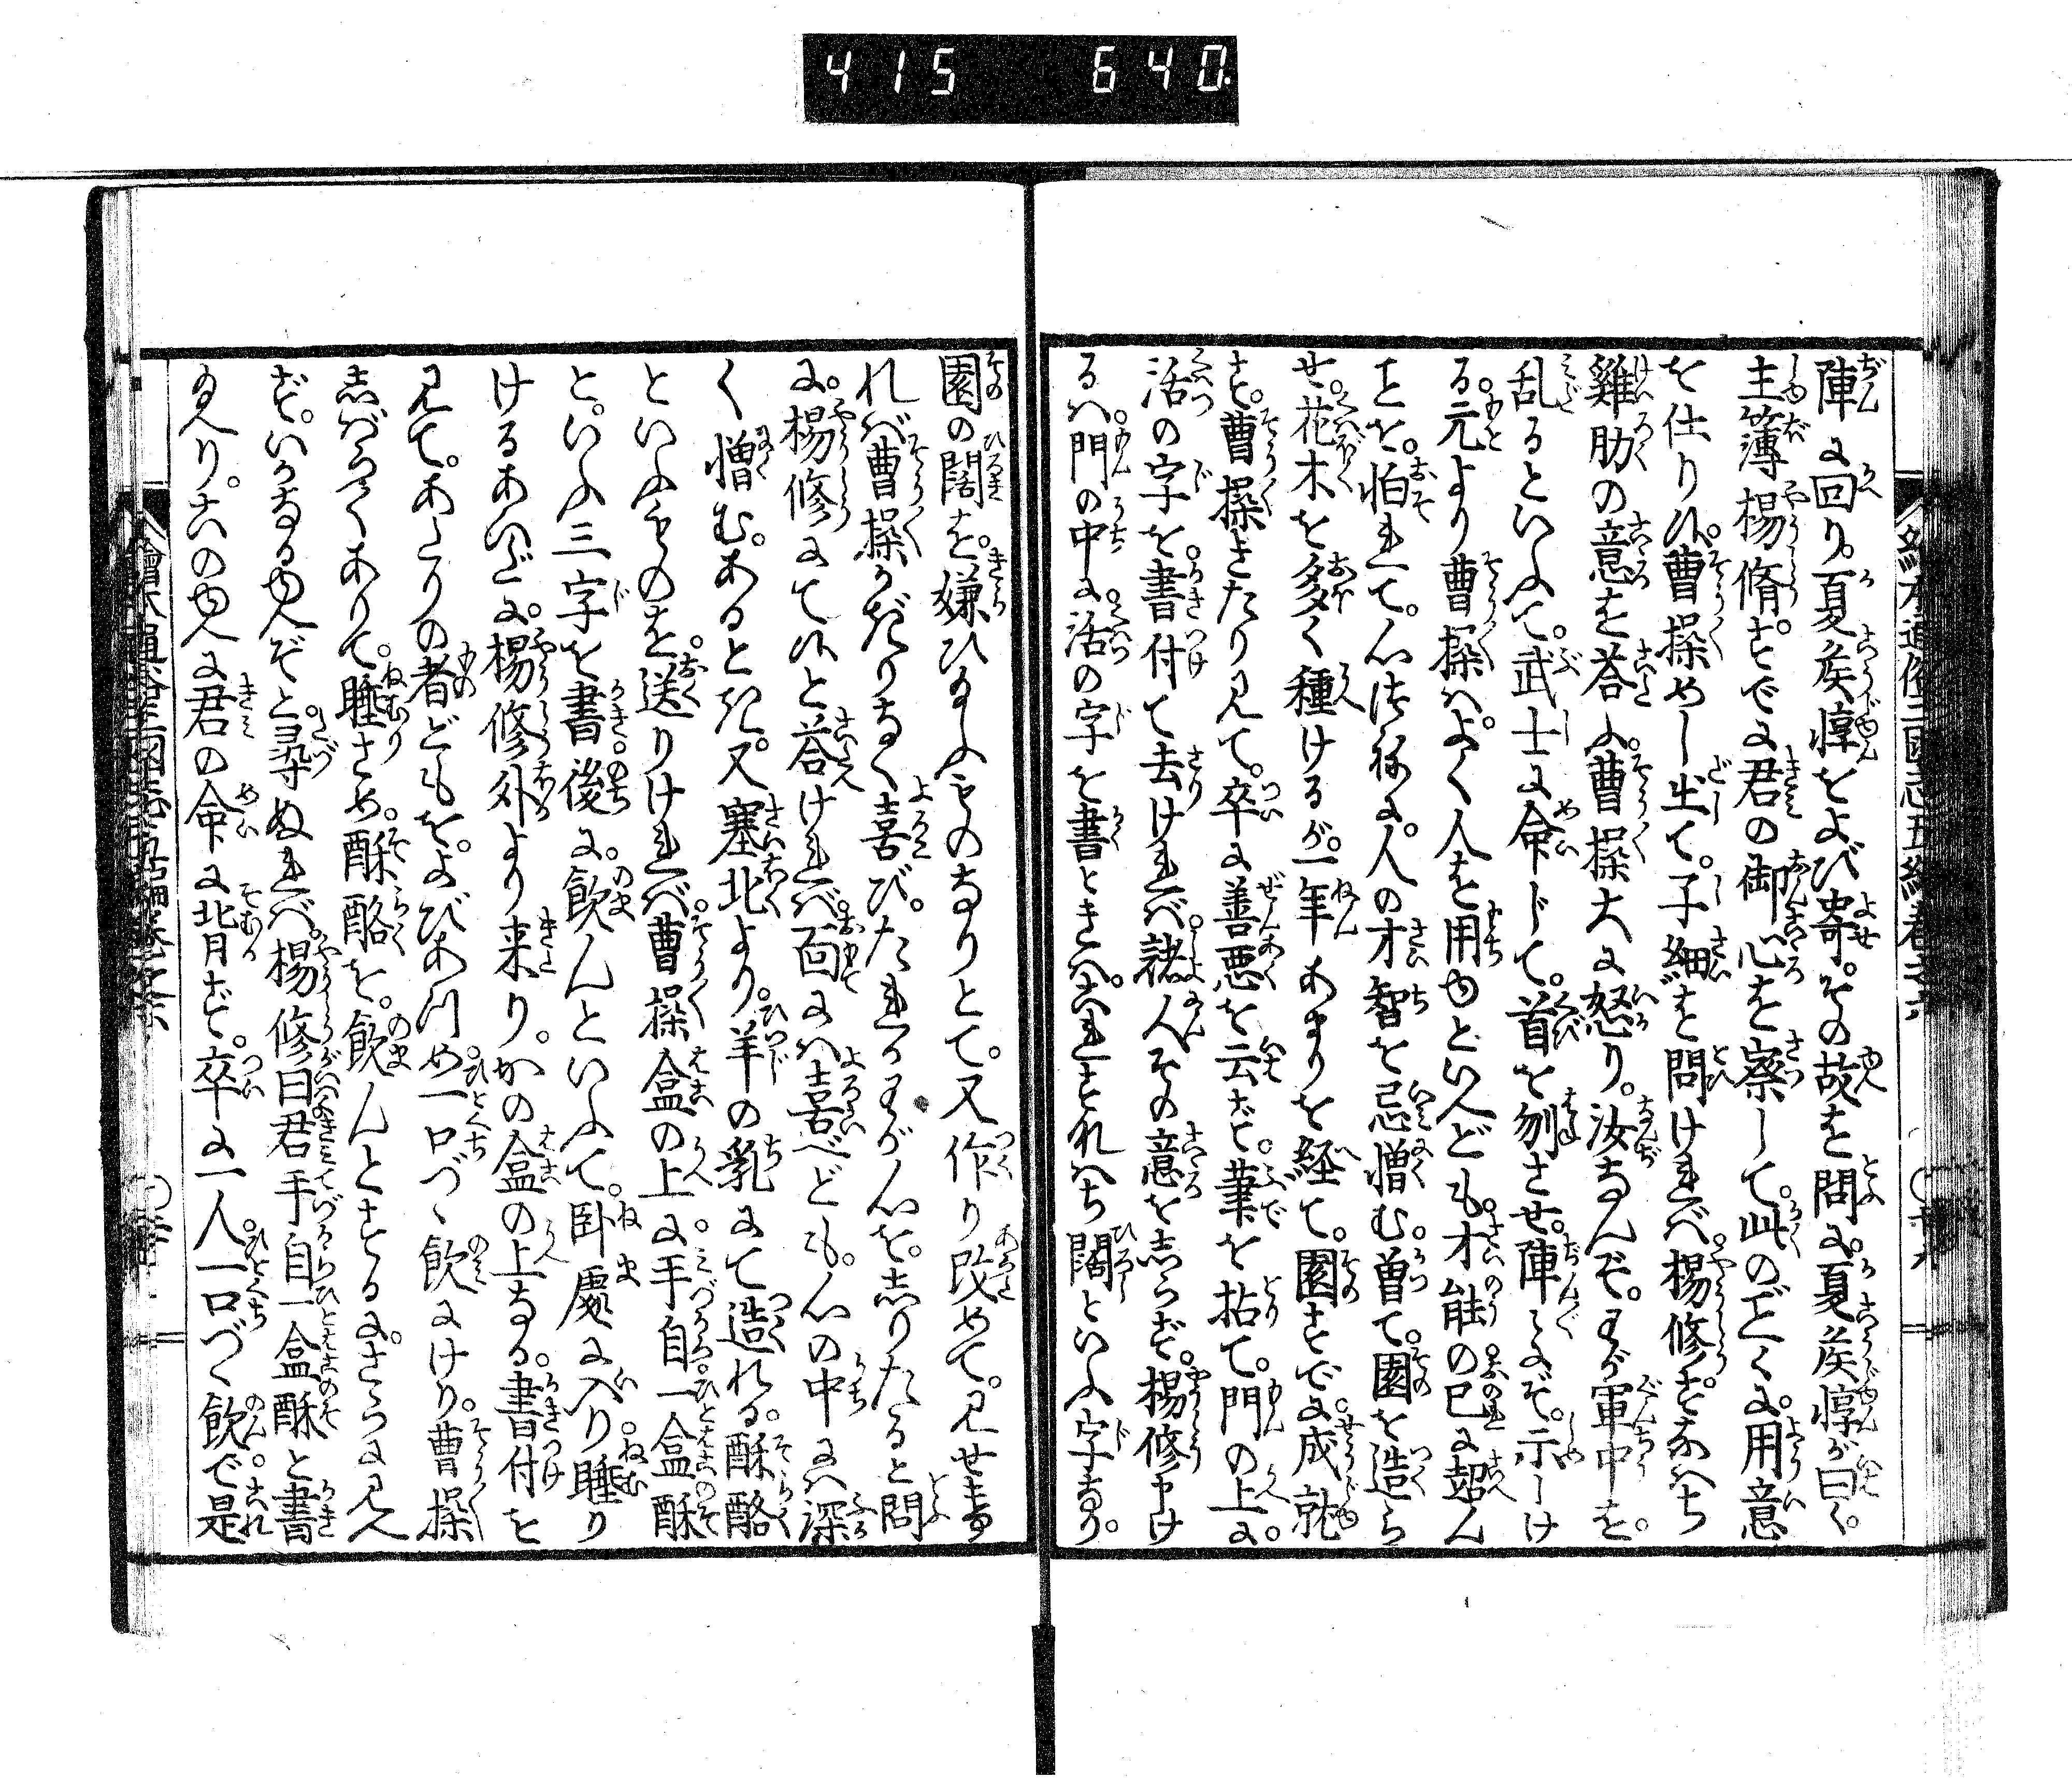 415 640
繪本通俗三國志五編巻之六
陣に回り。夏侯惇をよび寄。その故を問に。夏侯惇が曰く。
主簿楊脩。すでに君の御心を察して。此のごとくに。用意
を仕り候。曹操めし出て。子細を問ければ。楊修すなはち
雞肋の意を荅ふ。曹操大に怒り。汝なんぞ。わが軍中を。
乱るといふて。武士に命じて。首を刎させ。陣々に。示しけ
る。元より曹操は。よく人を用ゆといへども。才能の己に超ん
ことを。怕れて。心つねに。人の才智を忌憎む。曽て。園を造ら
せ。花木を多く種けるが。一年あまりを経て。園すでに成就
す。曹操きたり見て。卒に善悪を云ず。筆を拈て。門の上に。
活の字を書付て去ければ。諸人その意を志らず。楊修申け
るは。門の中に活の字を書ときは。これすなはち闊といふ字なり。
園の闊を。嫌ひ給ふものなりとて。又作り改めて。見せまゐ
れば曹操かぎりなく喜び。たれかわが心を。志りたると問
に。楊修にて候と荅ければ。面には喜べども。心の中には深
く憎む。あるとき。又塞北より。羊の乳にて造れる。酥酪
といふものを。送りければ。曹操盒の上に。手自一盒酥
と。いふ三字を書。後に。飲んといふて。卧處に入り。睡り
けるあいだに。楊修外より来り。かの盒の上なる。書付を
見て。あたりの者どもを。よびあつめ。一口づゝ飲にけり。曹操
志ばらくありて。睡さめ。酥酪を。飲んとするに。さらに見へ
ず。いかなるゆへぞと尋ぬれば。楊修曰君手自一盒酥と書
給へり。このゆへに君の命に背ず。卒に一人。一口づゝ飲で是
繪本通俗三國志五編巻之六